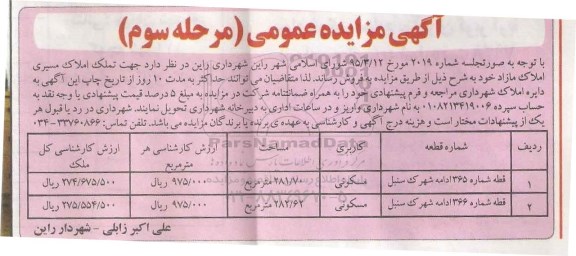 آگهی مزایده عمومی (مرحله سوم)
با توجه به صورتجلسه شماره ۲۰۱۹ مورخ ۹۵/۳/۱۲ شورای اسلامی شهر راین شهرداری راین در نظر دارد جهت تملک املاک مسیری
املاک مازاد خود به شرح ذیل از طریق مزایده به فروش رساند. لذا متقاضیان می توانند حداکثر به مدت ۱۰ روز از تاریخ چاپ این آگهی به
دایره املاک شهرداری مراجعه و فرم پیشنهادی خود را به همراه ضمانتنامه شرکت در مزایده به مبلغ ۵ درصد قیمت پیشنهادی یا وجه نقد به
حساب سپرده ۰۱۰۸۲۱۳۴۱۹۰۰۶ به نام شهرداری واریز و در ساعات اداری به دبیرخانه شهرداری تحویل نمایند. شهرداری در رد یا قبول هر
یک از پیشنهادات مختار است و هزینه درج آگهی و کارشناسی به عهده ی برنده یا برندگان مزایده می باشد. تلفن تماس: ۳۳۷۶۰۸۶۶-۰۳۴
ردیف شماره قطعه کاربری متراژ ارزش کارشناسی هر مترمربع ارزش کارشناسی کل ملک
۱ قطه شماره ۳۶۵ ادامه شهرک سنبل مسکونی ۲۸۱/۷۰ مترمربع ۹۷۵/۰۰۰ ریال ۲۷۴/۶۷۵/۵۰۰ ریال
۲ قطه شماره ۳۶۶ ادامه شهرک سنبل مسکونی ۲۸۲/۶۲ مترمربع ۹۷۵/۰۰۰ ریال ۲۷۵/۵۵۴/۵۰۰ ریال
علی اکبر زابلی - شهردار راین
ParsNamadData